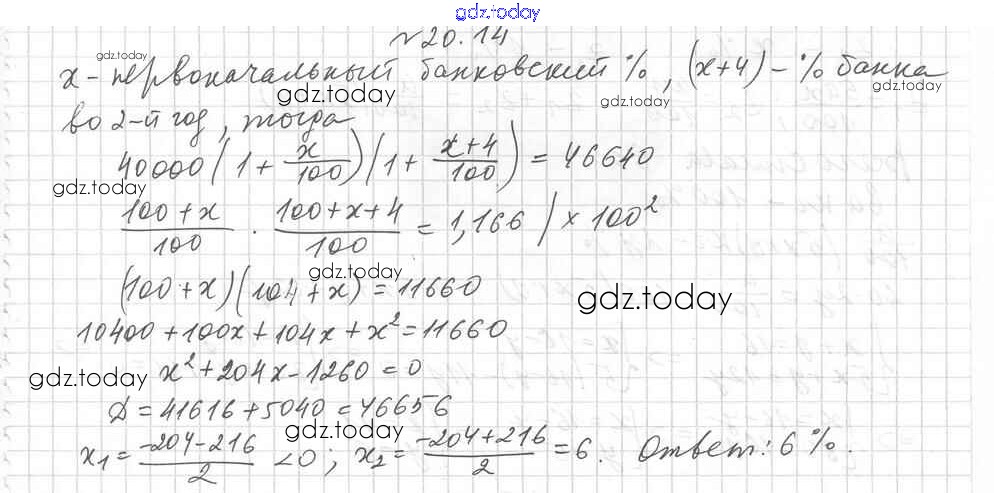 gdz.today
№20.14
gdz.today
x - первоначальный банковский %, (x+4) - % банка
gdz.today gdz.today
во 2-й год, тогда
40000(1 + x/100)(1 + x+4/100) = 46640
gdz.today
100+x/100 · 100+x+4/100 = 1,166 / × 100²
gdz.today
(100+x)(104+x) = 11660
gdz.today
10400+100x+104x+x²=11660
gdz.today x²+204x-1260=0
D=41616+5040=46656
gdz.today
x₁= -204-216/2 <0; x₂= -204+216/2 =6. Ответ: 6%.